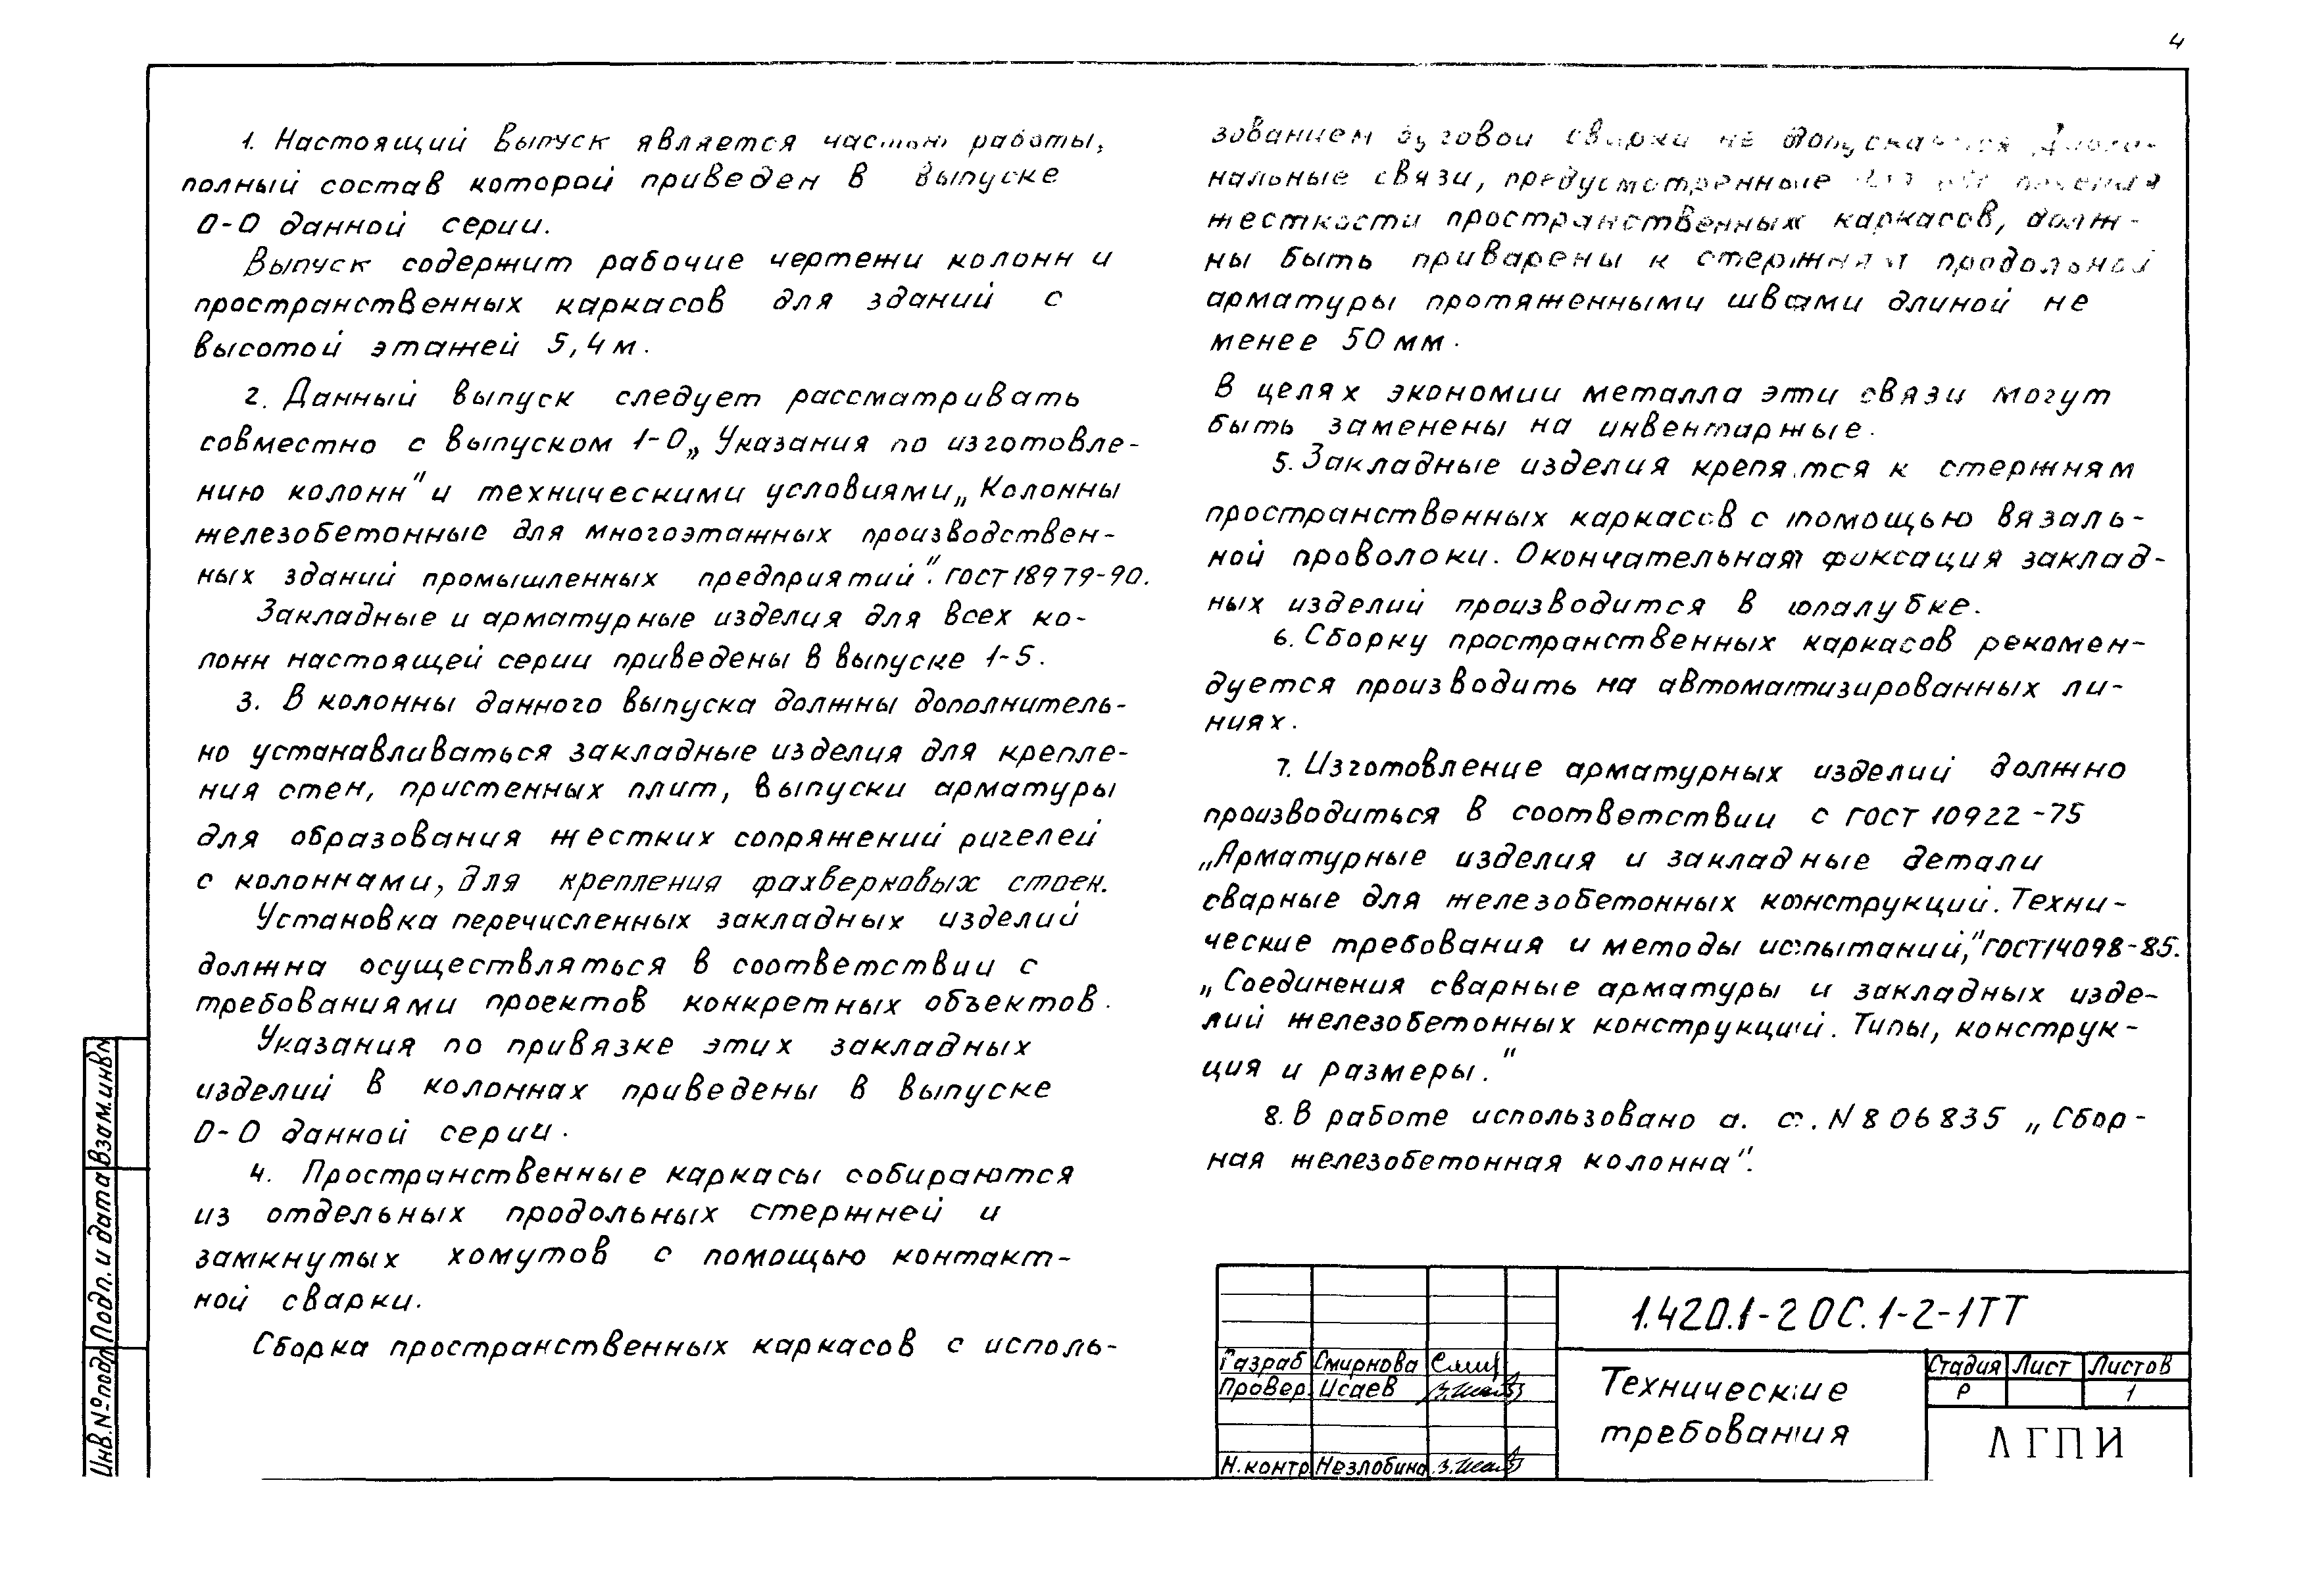 4
1. Настоящий выпуск является частью работы,
полный состав которой приведен в выпуске
0-0 данной серии.
Выпуск содержит рабочие чертежи колонн и
пространственных каркасов для зданий с
высотой этажей 5,4 м.
2. Данный выпуск следует рассматривать
совместно с выпуском 1-0 „Указания по изготовле-
нию колонн" и техническими условиями „Колонны
железобетонные для многоэтажных производствен-
ных зданий промышленных предприятий". ГОСТ 18979-90.
Закладные и арматурные изделия для всех ко-
лонн настоящей серии приведены в выпуске 1-5.
3. В колонны данного выпуска должны дополнитель-
но устанавливаться закладные изделия для крепле-
ния стен, пристенных плит, выпуски арматуры
для образования жестких сопряжений ригелей
с колоннами, для крепления фахверковых стоек.
Установка перечисленных закладных изделий
должна осуществляться в соответствии с
требованиями проектов конкретных объектов.
Указания по привязке этих закладных
изделий в колоннах приведены в выпуске
0-0 данной серии.
4. Пространственные каркасы собираются
из отдельных продольных стержней и
замкнутых хомутов с помощью контакт-
ной сварки.
Сборка пространственных каркасов с исполь-
зованием дуговой сварки не допускается Диаго-
нальные связи, предусмотренные для обеспечения
жесткости пространственных каркасов, долж-
ны быть приварены к стержням продольной
арматуры протяженными швами длиной не
менее 50 мм.
В целях экономии металла эти связи могут
быть заменены на инвентарные.
5. Закладные изделия крепятся к стержням
пространственных каркасов с помощью вязаль-
ной проволоки. Окончательная фиксация заклад-
ных изделий производится в опалубке.
6. Сборку пространственных каркасов рекомен-
дуется производить на автоматизированных ли-
ниях.
7. Изготовление арматурных изделий должно
производиться в соответствии с ГОСТ 10922-75
„Арматурные изделия и закладные детали
сварные для железобетонных конструкций. Техни-
ческие требования и методы испытаний," ГОСТ 14098-85.
„Соединения сварные арматуры и закладных изде-
лий железобетонных конструкций. Типы, конструк-
ция и размеры."
8. В работе использовано а. с. N 806835 „Сбор-
ная железобетонная колонна".
Взам. инв N
Подп. и дата
Инв. № подл
1.420.1-20С.1-2-1ТТ
Разраб Смирнова
Провер. Исаев
Н.контр Незлобина
Технические
требования
Стадия Лист Листов
Р 1
ЛГПИ